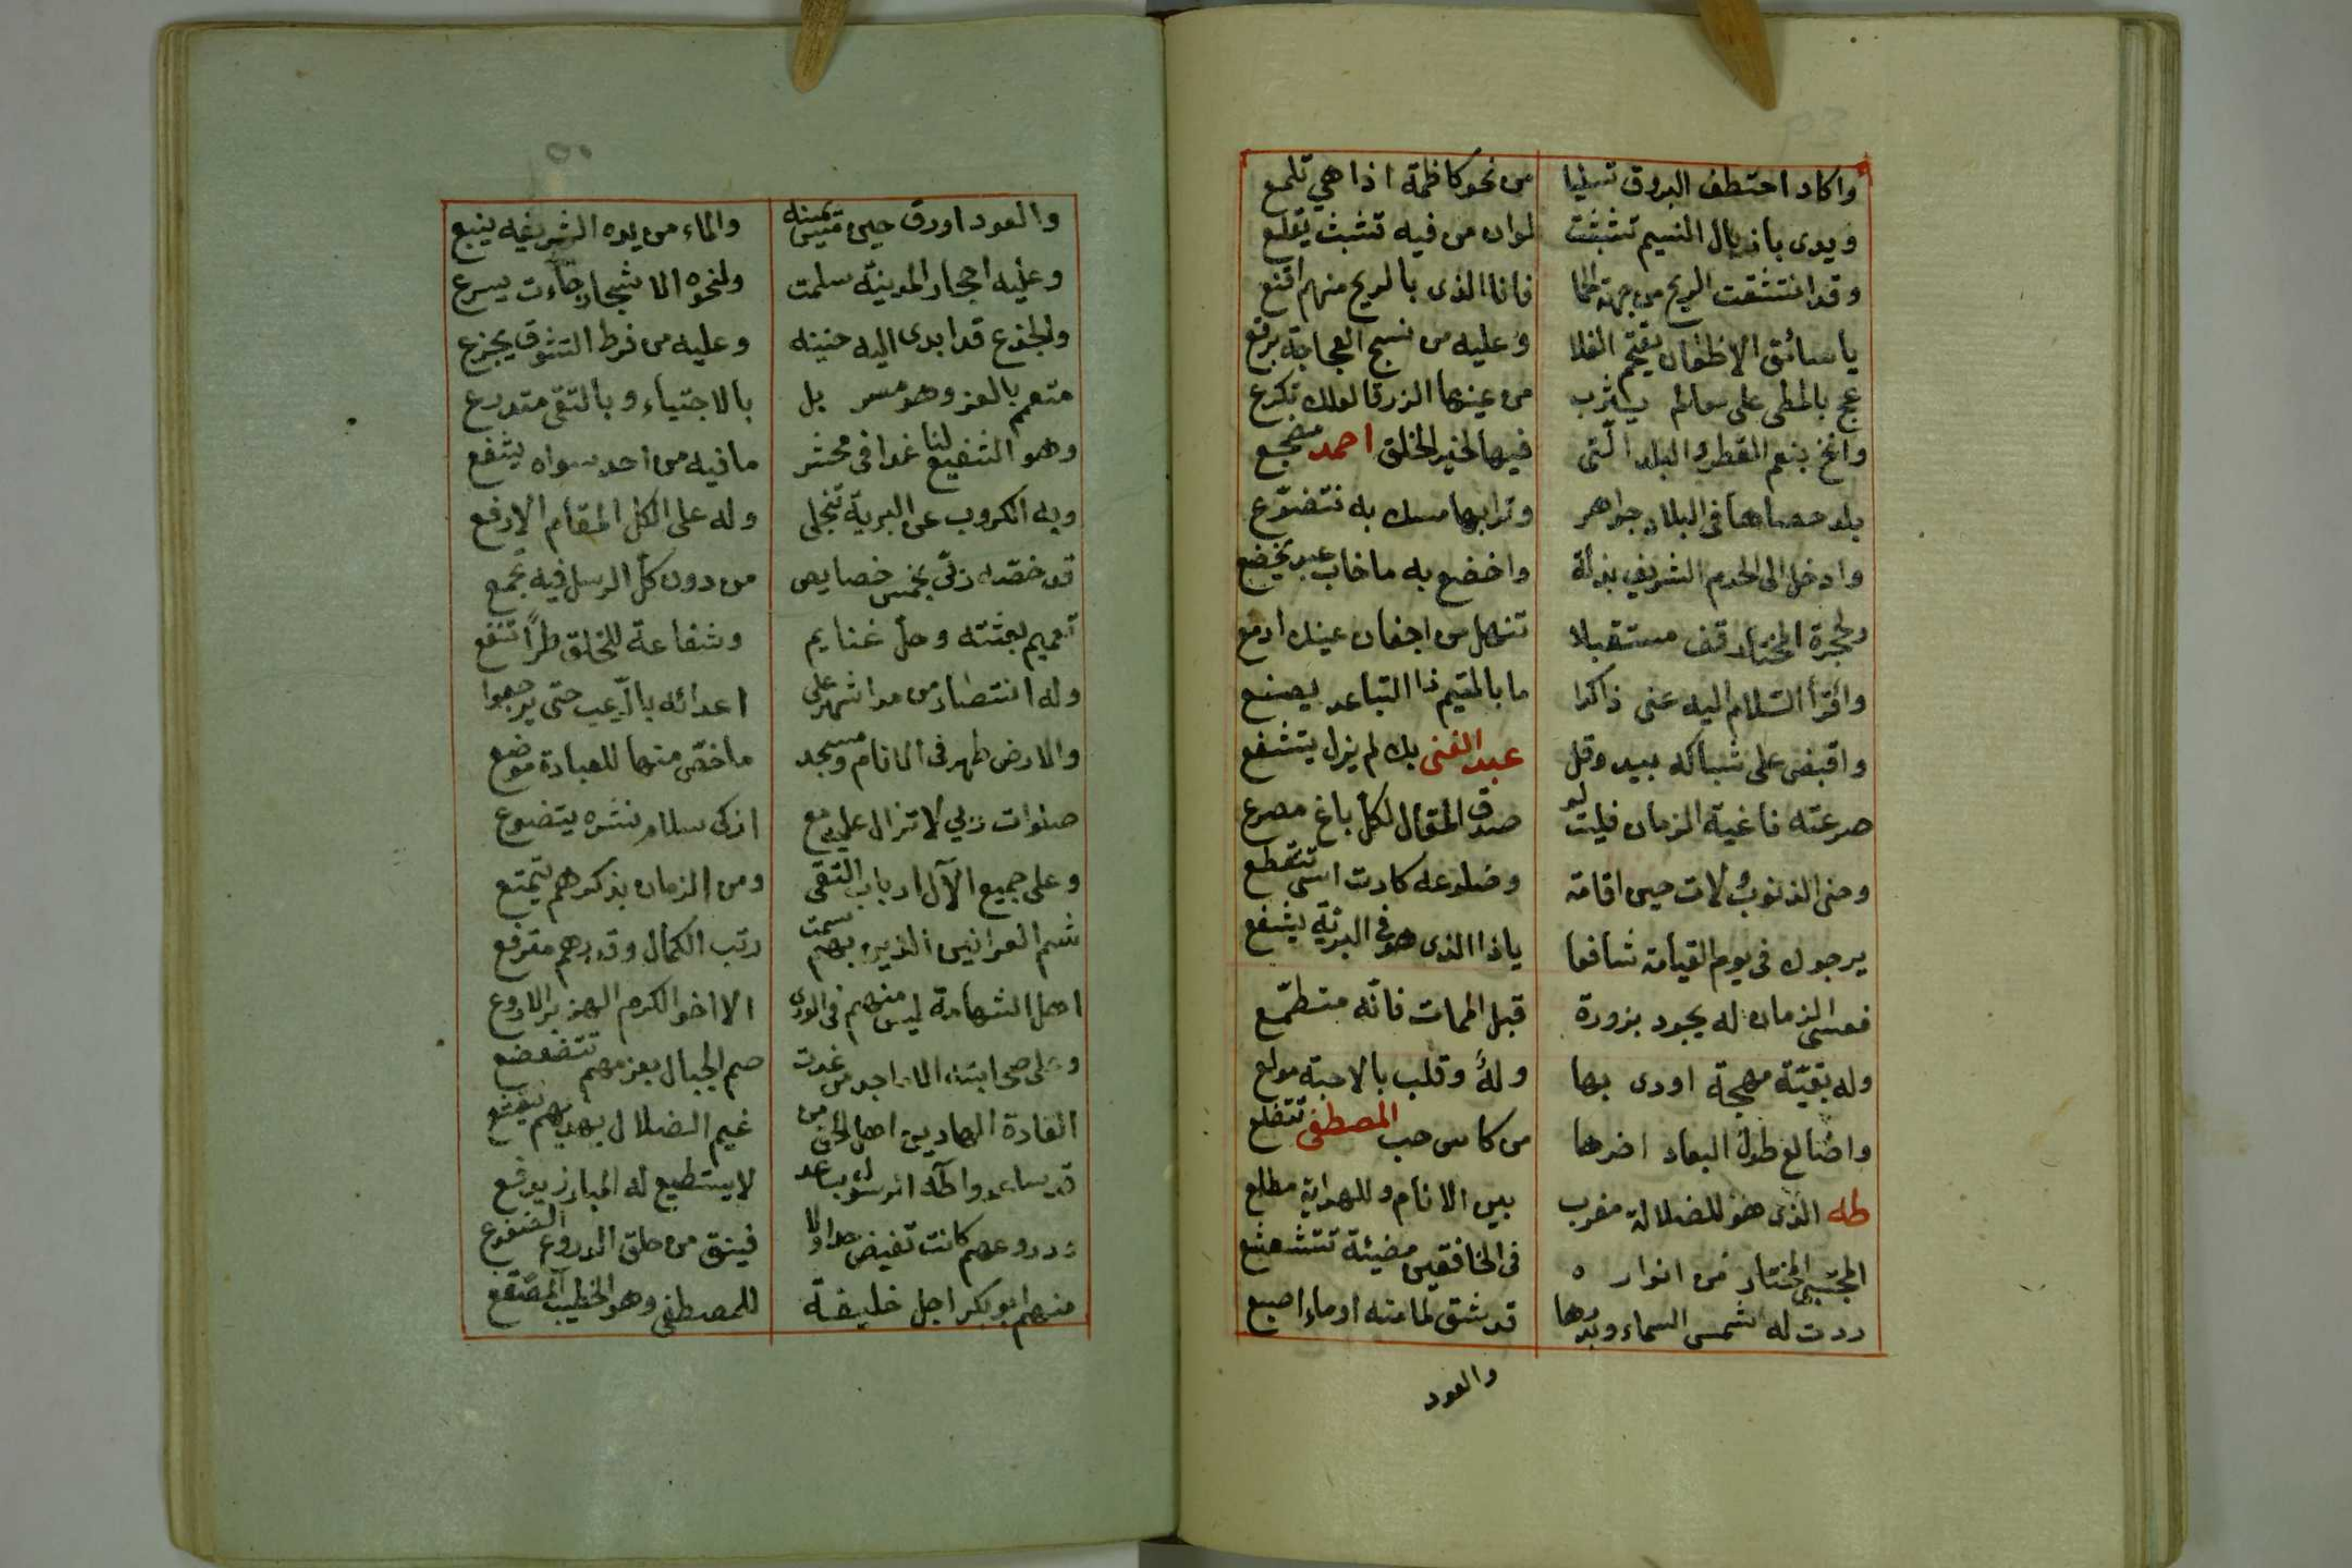 واكاد احتطف البروق تسليا من نحو كاظمة اذا هي تلمع
ويدى باذيال النسيم تشبثت لوان من فيه تشبث يقلع
وقد انتشقت الريح من جهة الحما فانا الذى بالريح منهم اقنع
يا سائق الاظعان يقتحم الفلا وعليه من نسج العجاجة برقع
عج بالمطى على معالم يثرب من عينها الزرقا لعلك تكرع
وانخ بنعم القطر والبلد التى فيها لخير الخلق احمد مضجع
بلد حصاها فى البلاد جواهر وترابها مسك به نتضوع
وادخل الى الحرم الشريف بذلة واخضع به ما خاب عبد يخضع
ولحجرة المختار قف مستقبلا تنهل من اجفان عينك ادمع
واقرأ السلام اليه عنى ذاكرا ما بالمتيم ذا التباعد يصنع
واقبض على شباكه بيد وقل عبد الغنى بك لم يزل يتشفع
صرعته فاغية الزمان فليت لو صدق المقال لكل باغ مصرع
وحنى الذنوب ولات حين اقامة وضلوعه كادت اسى تتقطع
يرجوك فى يوم القيامة شافعا ياذا الذى هو فى البرية يشفع
فعسى الزمان له يجود بزورة قبل الممات فانه متطمع
وله بقية مهجة اودى بها وله وقلب بالاحبة مولع
واضالع طول البعاد اضرها من كاس حب المصطفى تتضلع
طه الذى هو للضلالة مغرب بين الانام وللهداية مطلع
المجتبى المختار من انواره فى الخافقين مضيئة تتشعشع
ردت له شمس السماء وبدرها قد شق لما منه اوماء اصبع
والعود
٥٠
والعود اورق حين مس يمينه والماء من يده الشريفه ينبع
وعليه احجار المدينة سلمت ولنحوه الاشجار جاءت يسرع
والجذع قد ابدى اليه حنينه وعليه من فرط التشوق يجزع
متعمم بالعز وهو مسربل بالاجتباء وبالتقى متدرع
وهو الشفيع لنا غدا فى محشر ما فيه من احد سواه يشفع
وبه الكروب عن البرية تنجلى وله على الكل المقام الارفع
قد خصه ربى بخمس خصايص من دون كل الرسل فيه تجمع
تعميم بعثته وحل غنايم وشفاعة للخلق طرا تنفع
وله انتصار من مدا شهر على اعدائه بالرعب حتى يرجعوا
والارض طهر فى الانام ومسجد ما خص منها للعبادة موضع
صلوات ربي لا تزال عليه مع ازكى سلام نشره يتضوع
وعلى جميع الآل ارباب التقى ومن الزمان بذكرهم يتمتع
شم العرانين الذين بهم سمت رتب الكمال وقدرهم مترفع
اهل الشهامة ليس منهم فى الورى الا اخو الكرم الهزبر الاروع
وعلى صحابته الاماجد من غدت صم الجبال بعزمهم تتضعضع
القادة الهادين اهل الحق من غيم الضلال بهديهم يتقشع
لا يستطيع له المبارز يرفع
ودروعهم كانت تفيض جداولا فينق من حلق الدروع الضفدع
منهم ابو بكر اجل خليفة للمصطفى وهو الخطيب المصقع